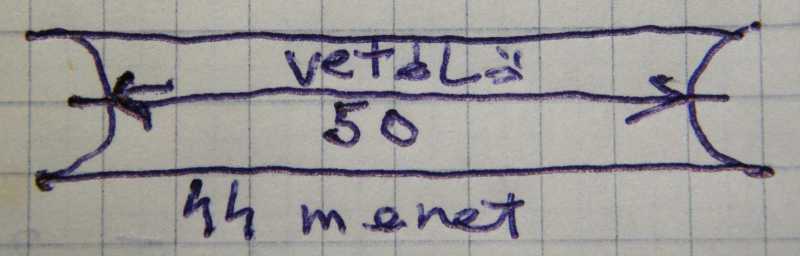 vetéLő
50
44 menet